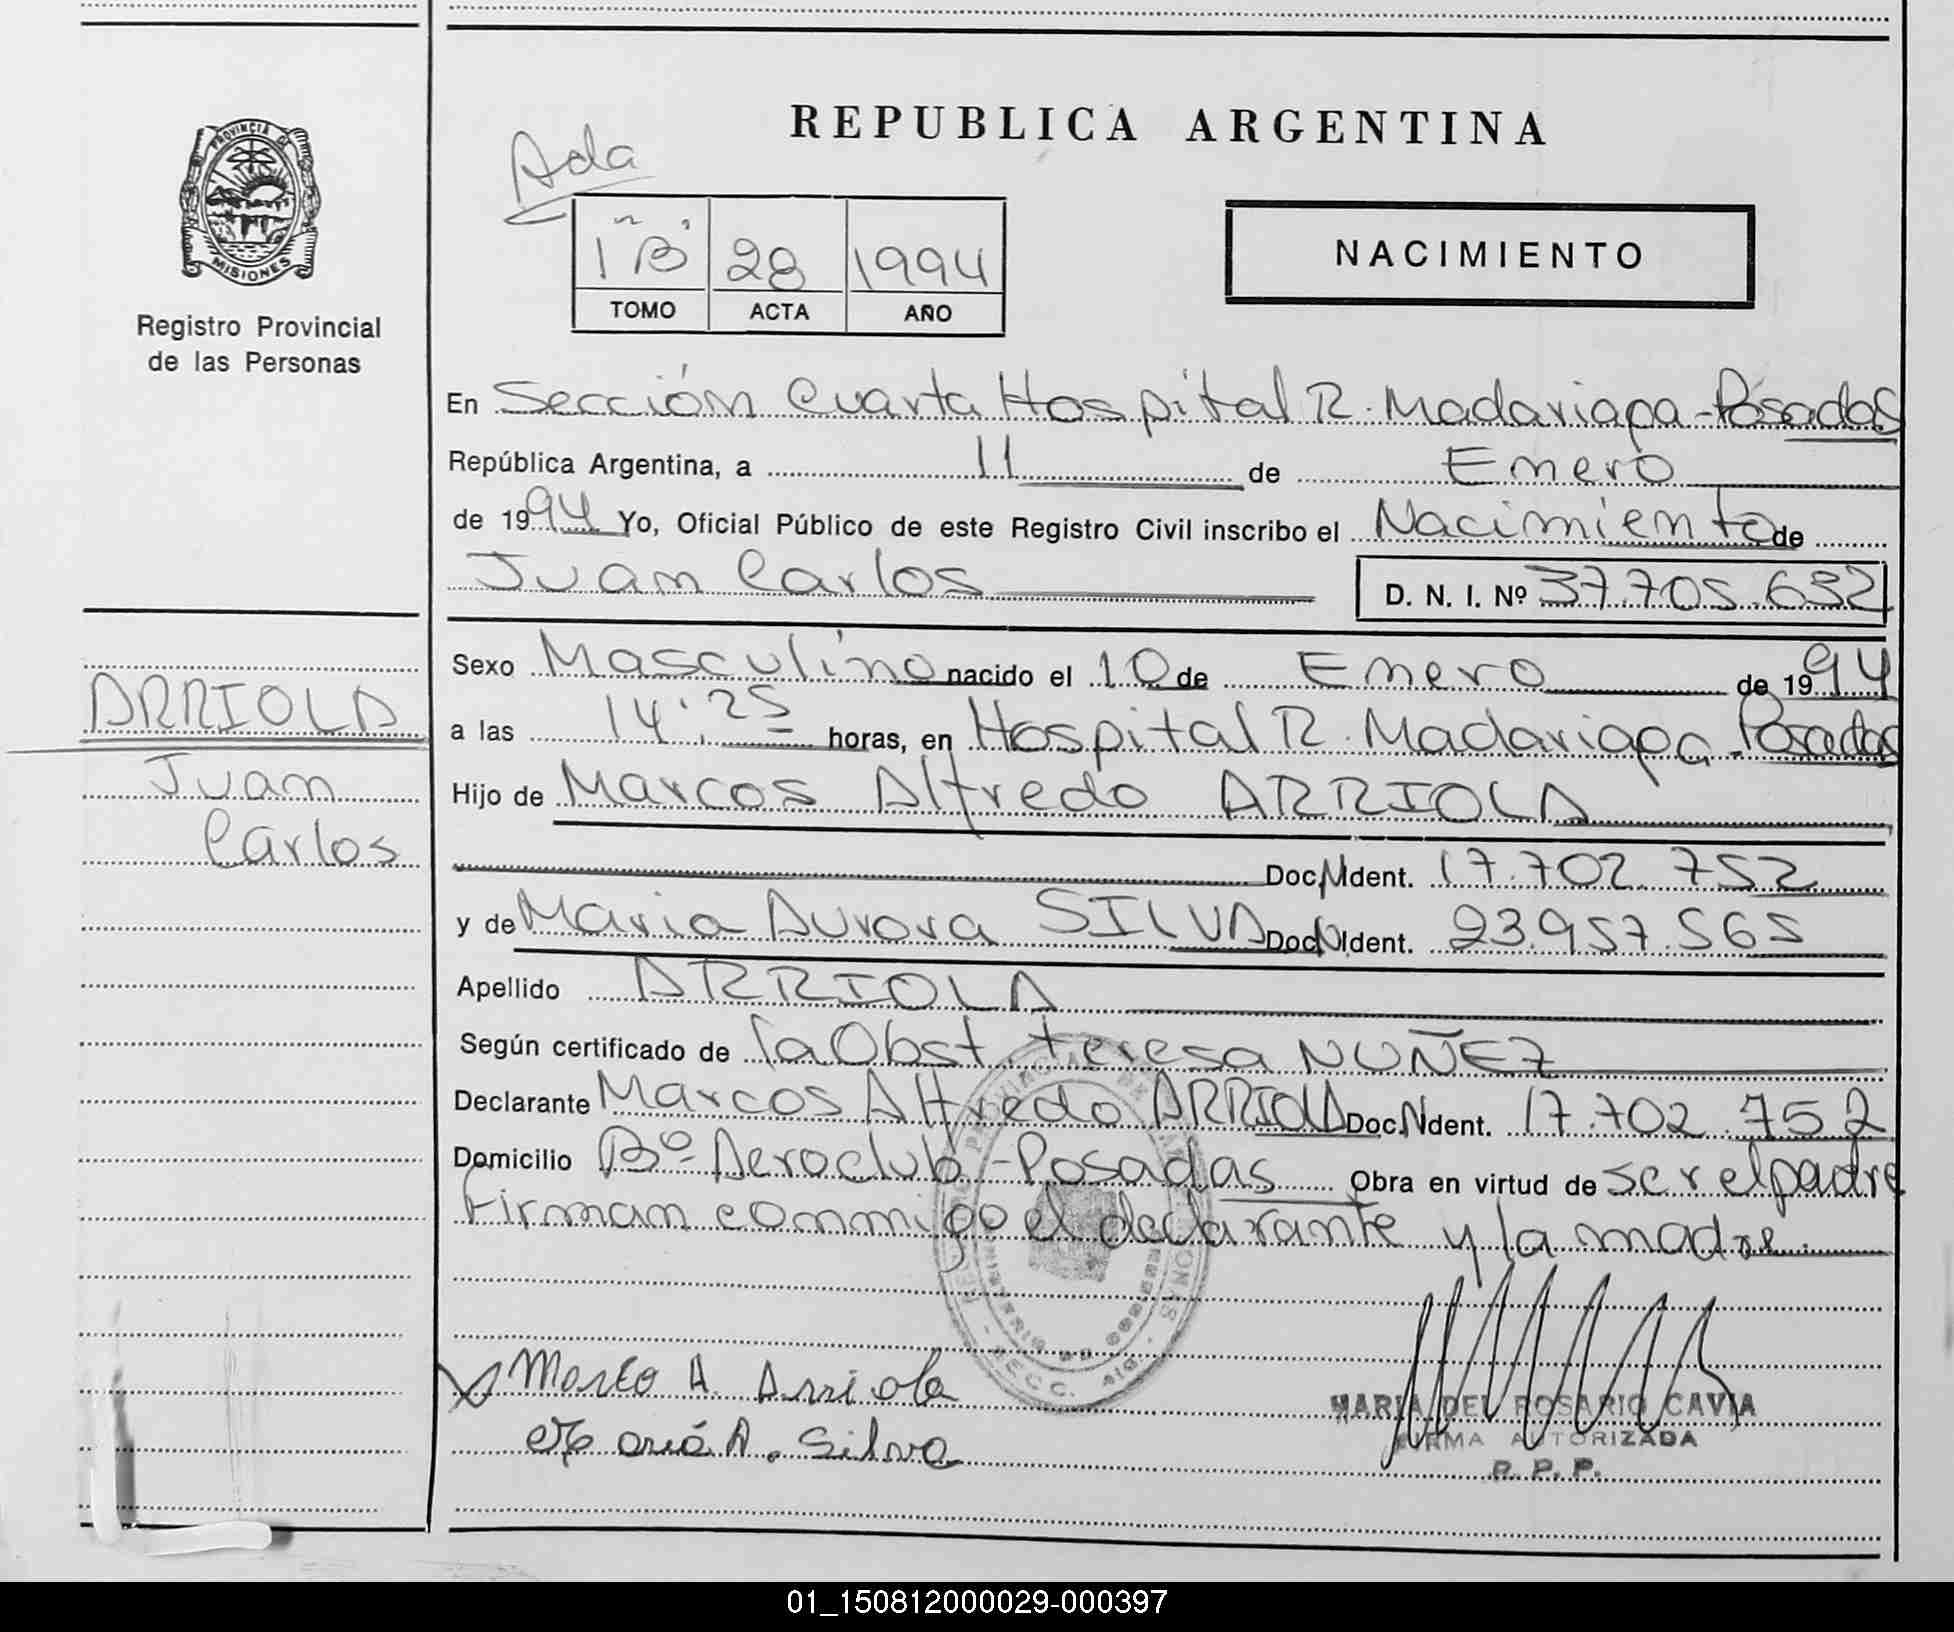 REPUBLICA ARGENTINA
Ada
1 "B" 28 1994
TOMO ACTA AÑO
NACIMIENTO
PROVINCIA DE
MISIONES
Registro Provincial
de las Personas
En Sección Cuarta Hospital R. Madariaga-Posadas
República Argentina, a 11 de Enero
de 1994 Yo, Oficial Público de este Registro Civil inscribo el Nacimiento de
Juan Carlos D. N. I. Nº 37.705.632
Sexo Masculino nacido el 10 de Enero de 1994
a las 14:25 horas, en Hospital R. Madariaga-Posadas
Hijo de Marcos Alfredo ARRIOLA
Doc. Ident. 17.702.752
y de Maria Aurora SILVA Doc. Ident. 23.957.565
Apellido ARRIOLA
Según certificado de la Obst. Teresa NUÑEZ
Declarante Marcos Alfredo ARRIOLA Doc. Ident. 17.702.752
Domicilio Bº Aeroclub-Posadas Obra en virtud de ser el padre
Firman conmigo el declarante y la madre.
ARRIOLA
Juan
Carlos
A. Arriola
A. Silva
MARIA DEL ROSARIO CAVIA
FIRMA AUTORIZADA
R. P. P.
01_150812000029-000397